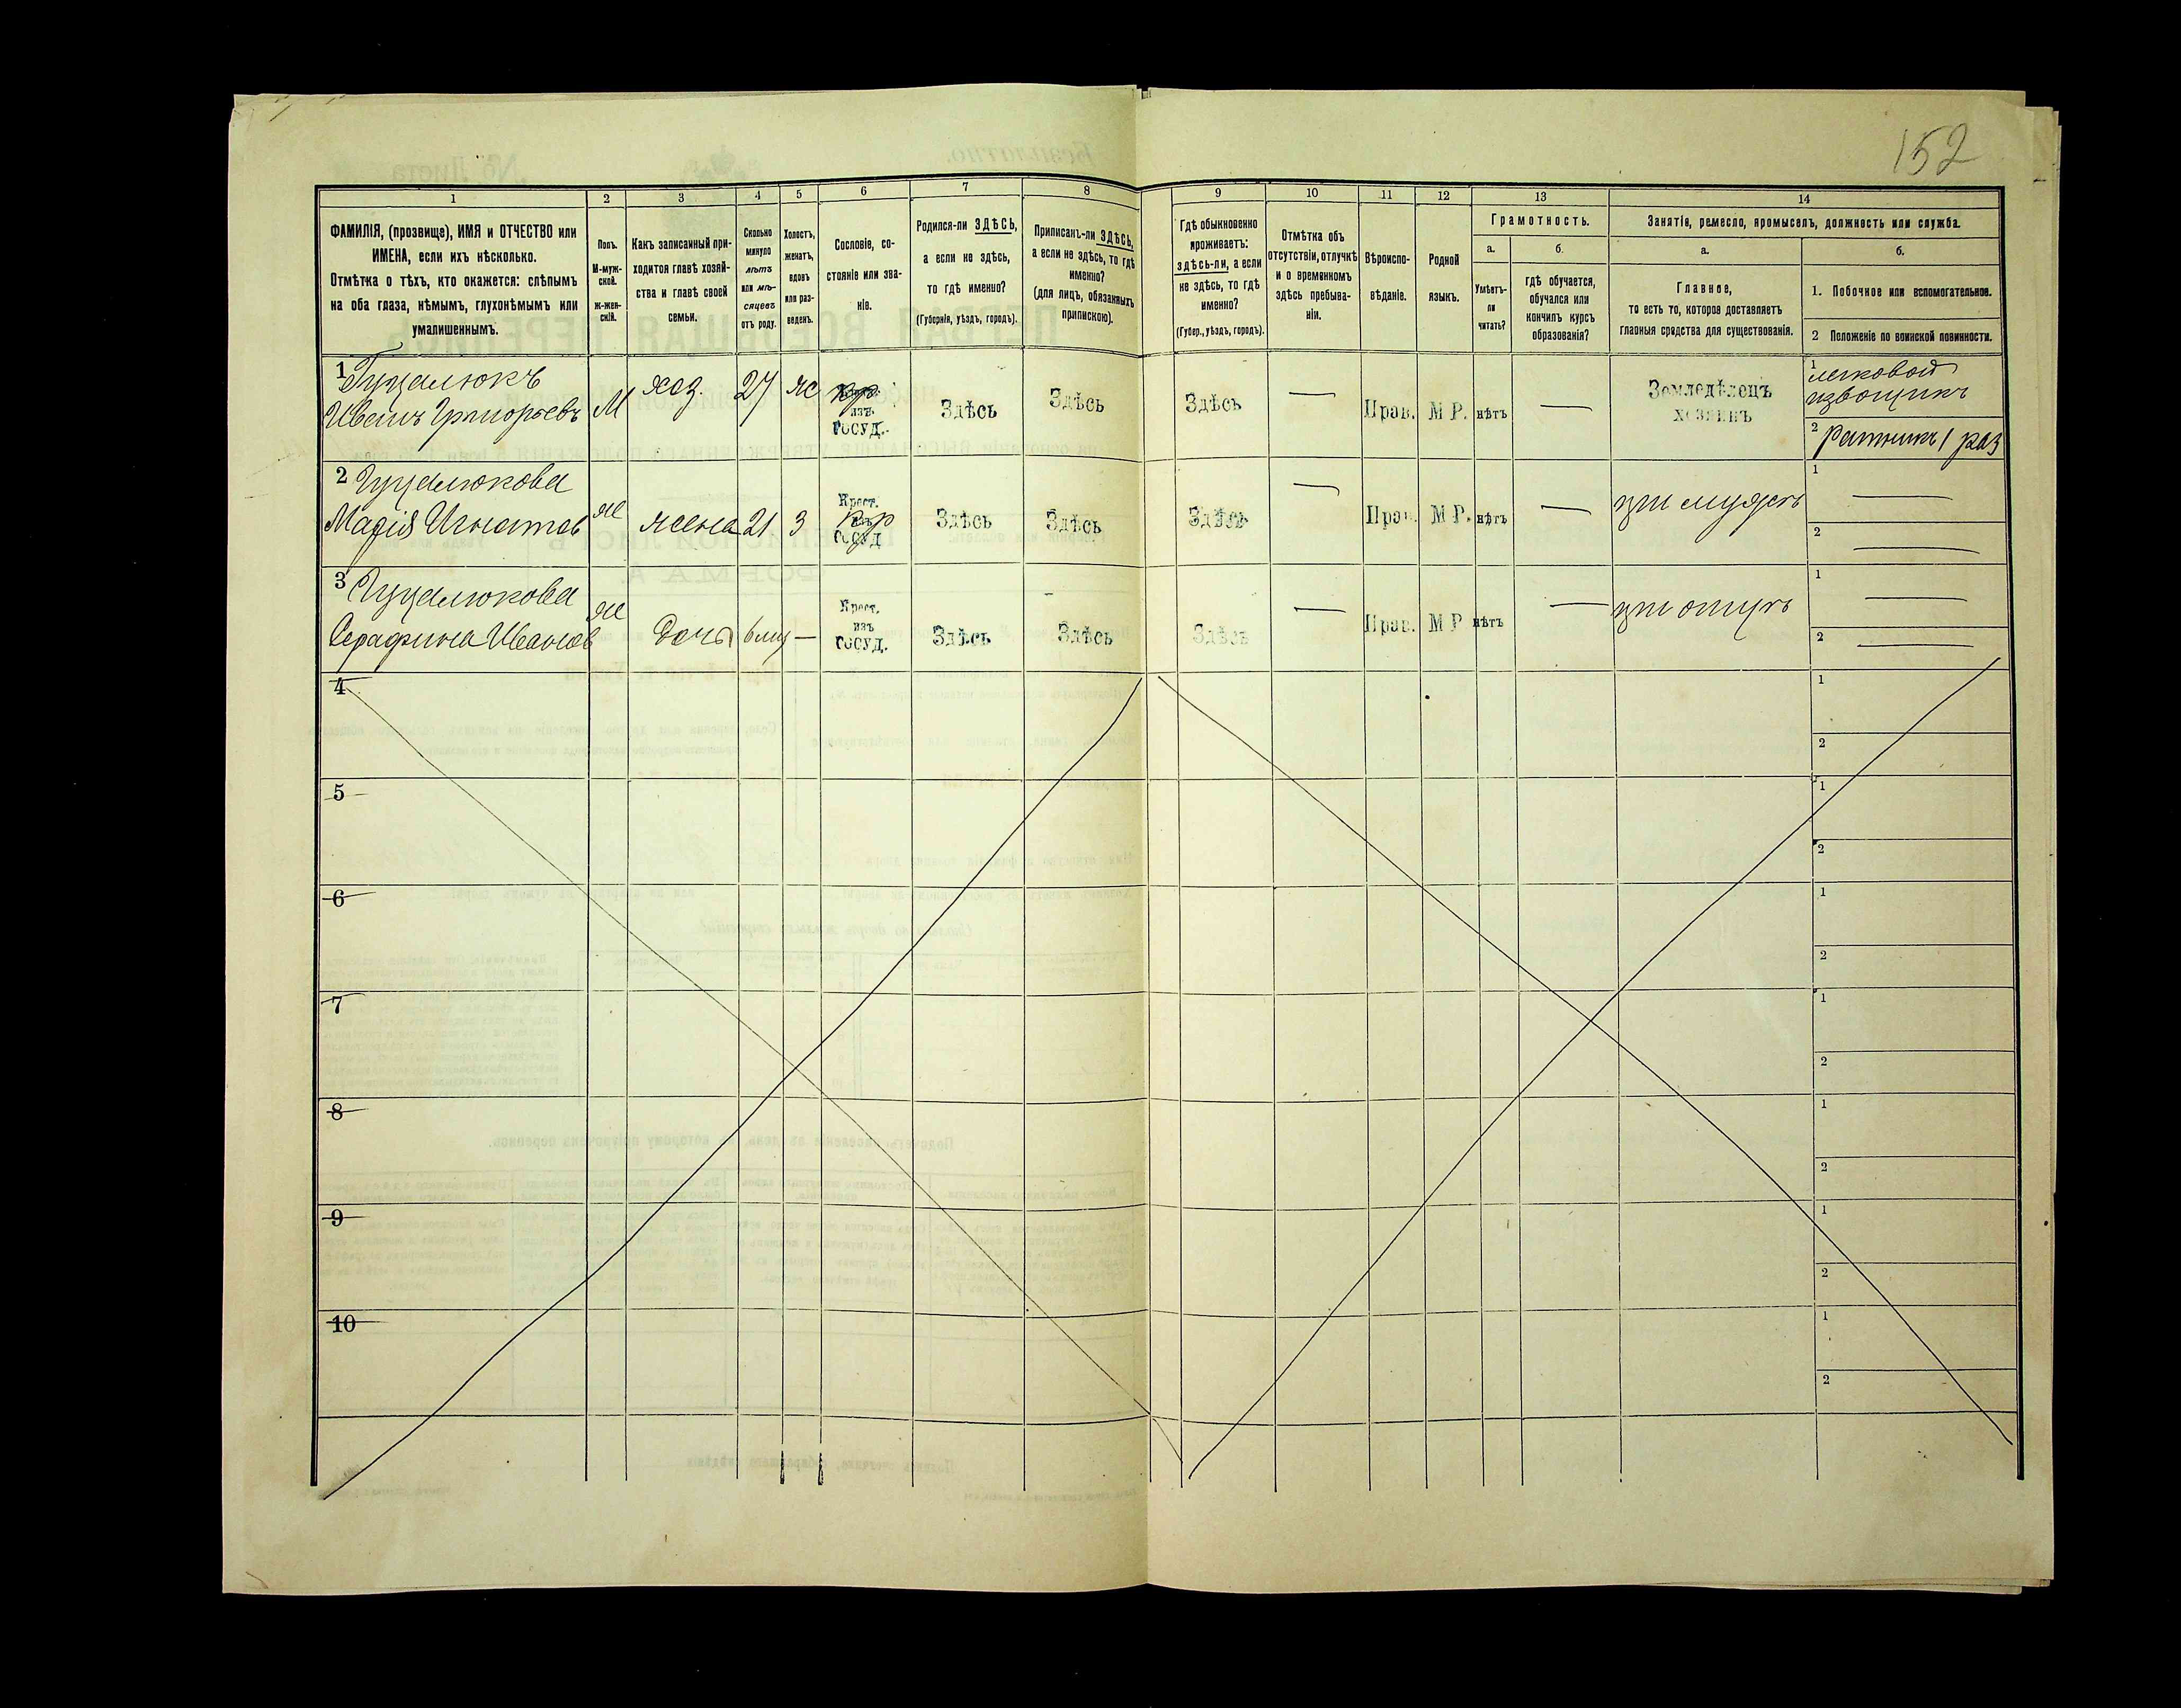 152
1 2 3 4 5 6 7 8 9 10 11 12 13 14
ФАМИЛІЯ, (прозвище), ИМЯ и ОТЧЕСТВО или
ИМЕНА, если ихъ нѣсколько.
Отмѣтка о тѣхъ, кто окажется: слѣпымъ
на оба глаза, нѣмымъ, глухонѣмымъ или
умалишеннымъ.
Полъ.
М-муж-
ской.
ж-жен-
скій.
Какъ записанный при-
ходится главѣ хозяй-
ства и главѣ своей
семьи.
Сколько
минуло
лѣтъ
или мѣ-
сяцевъ
отъ роду.
Холостъ,
женатъ,
вдовъ
или раз-
веденъ.
Сословіе, со-
стояніе или зва-
ніе.
Родился-ли ЗДѢСЬ,
а если не здѣсь,
то гдѣ именно?
(Губернія, уѣздъ, городъ).
Приписанъ-ли ЗДѢСЬ,
а если не здѣсь, то гдѣ
именно?
(для лицъ, обязанныхъ
припискою).
Гдѣ обыкновенно
проживаетъ:
здѣсь-ли, а если
не здѣсь, то гдѣ
именно?
(Губер., уѣздъ, городъ).
Отмѣтка объ
отсутствіи, отлучкѣ
и о временномъ
здѣсь пребыва-
ніи.
Вѣроиспо-
вѣданіе.
Родной
языкъ.
Грамотность.
а.
Умѣетъ-
ли
читать?
б.
гдѣ обучается,
обучался или
кончилъ курсъ
образованія?
Занятія, ремесло, промыселъ, должность или служба.
а.
Главное,
то есть то, которое доставляетъ
главныя средства для существованія.
б.
1. Побочное или вспомогательное.
2 Положеніе по воинской повинности.
1 Гуцалюкъ
Иванъ Григорьевъ
М хоз. 27 ж кр
изъ
госуд.
Здѣсь Здѣсь Здѣсь — Прав. М Р. нѣтъ —
Земледѣлецъ
хозяинъ
1 легковой
извощикъ
2 ратникъ 1 раз
2 Гуцалюкова
Марія Игнатов
ж жена 21 З
Крест.
изъ
госуд
кр
Здѣсь Здѣсь Здѣсь — Прав. М Р. нѣтъ — при мужѣ
1 —
2 —
3 Гуцалюкова
Серафина Иванов
ж дочь 6 мц —
Крест.
изъ
госуд.
Здѣсь Здѣсь Здѣсь — Прав. М Р нѣтъ — при отцѣ
1 —
2 —
4 1
2
5 1
2
6 1
2
7 1
2
8 1
2
9 1
2
10 1
2